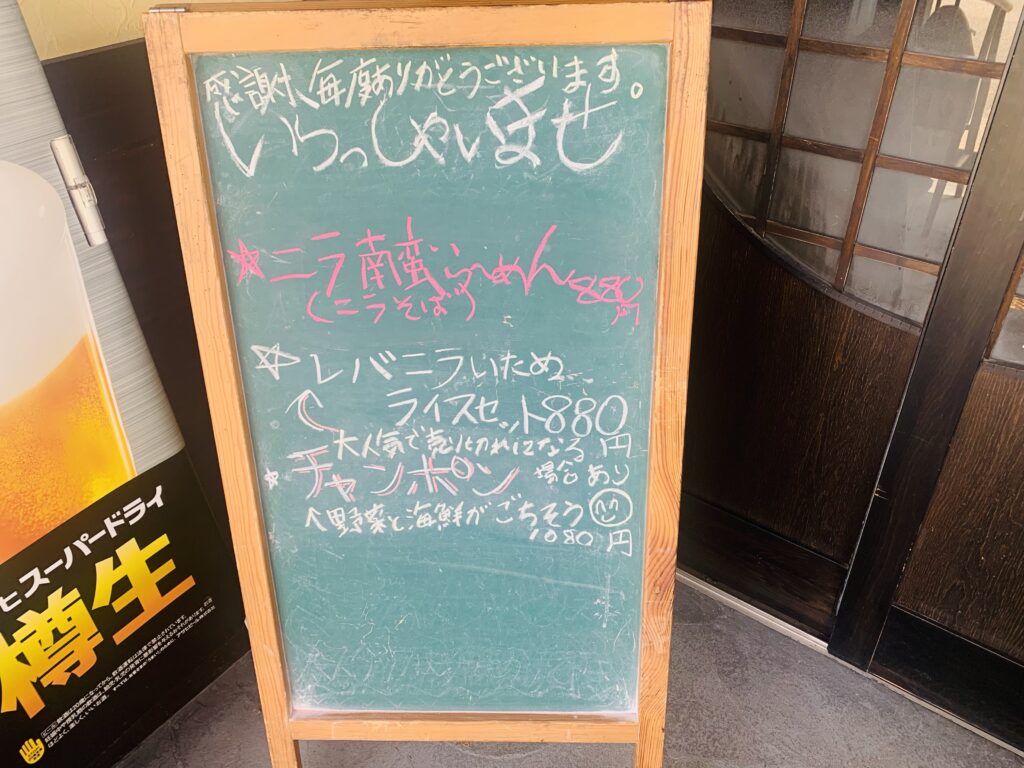 感謝、毎度ありがとうございます。
いらっしゃいませ
☆ニラ南蛮らーめん880円
(ニラそば)
☆レバニライため
ライスセット880円
大人気で売り切れになる
場合あり
☆チャンポン
野菜と海鮮がごちそう
1080円
ヒスーパードライ
樽生